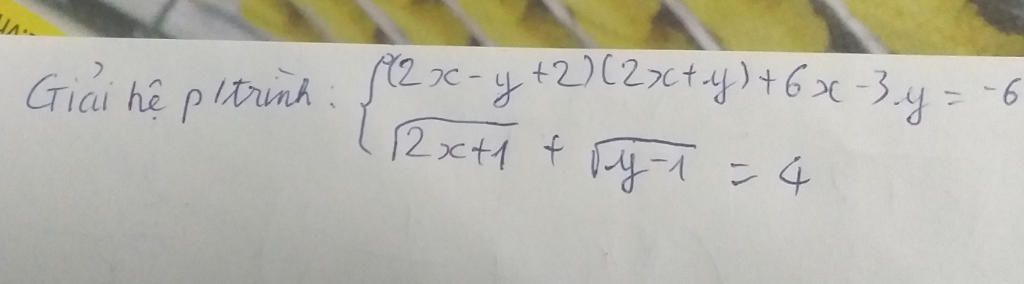 Giải hệ p/trình: { (2x - y + 2)(2x + y) + 6x - 3y = -6
√2x+1 + √y-1 = 4